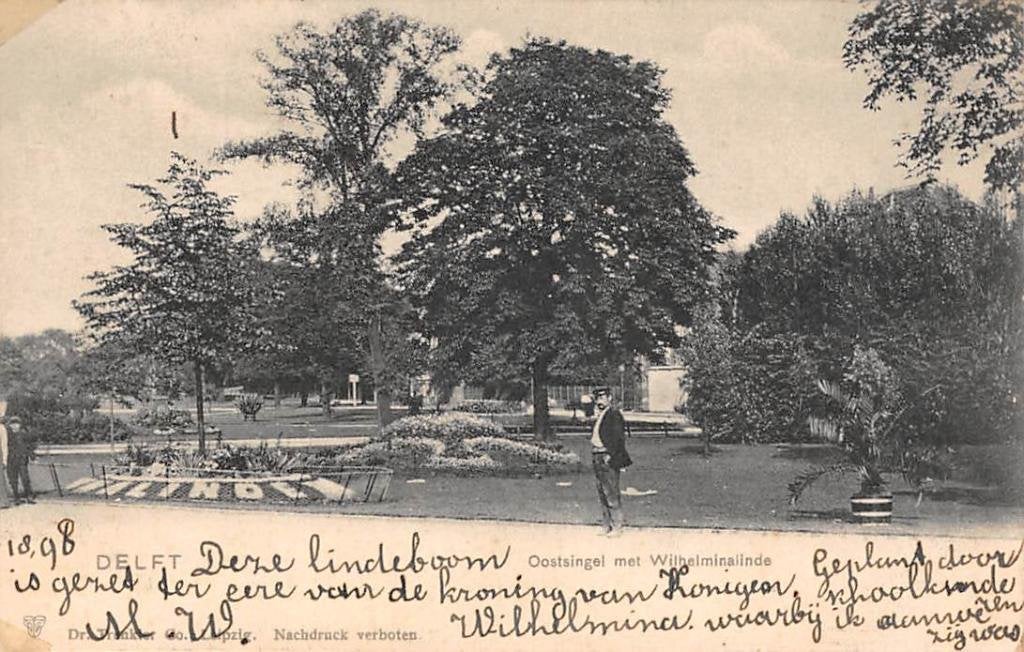 18,98 DELFT Deze lindeboom Oostsingel met Wilhelminalinde Geplant door
is gezet ter eere van de kroning van Konigen. schoolkinderen
M. W. Wilhelmina. waarby ik aanwezig was
Dr. Trenkler Co., Leipzig. Nachdruck verboten.